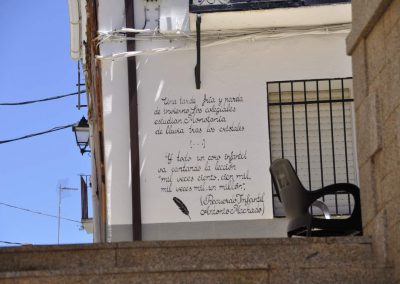 Una tarde fría y parda
de invierno. Los colegiales
estudian. Monotonía
de lluvia tras los cristales
[...]
Y todo un coro infantil
va cantando la lección
"mil veces ciento, cien mil,
mil veces mil, un millón",
(Recuerdo Infantil
Antonio Machado)